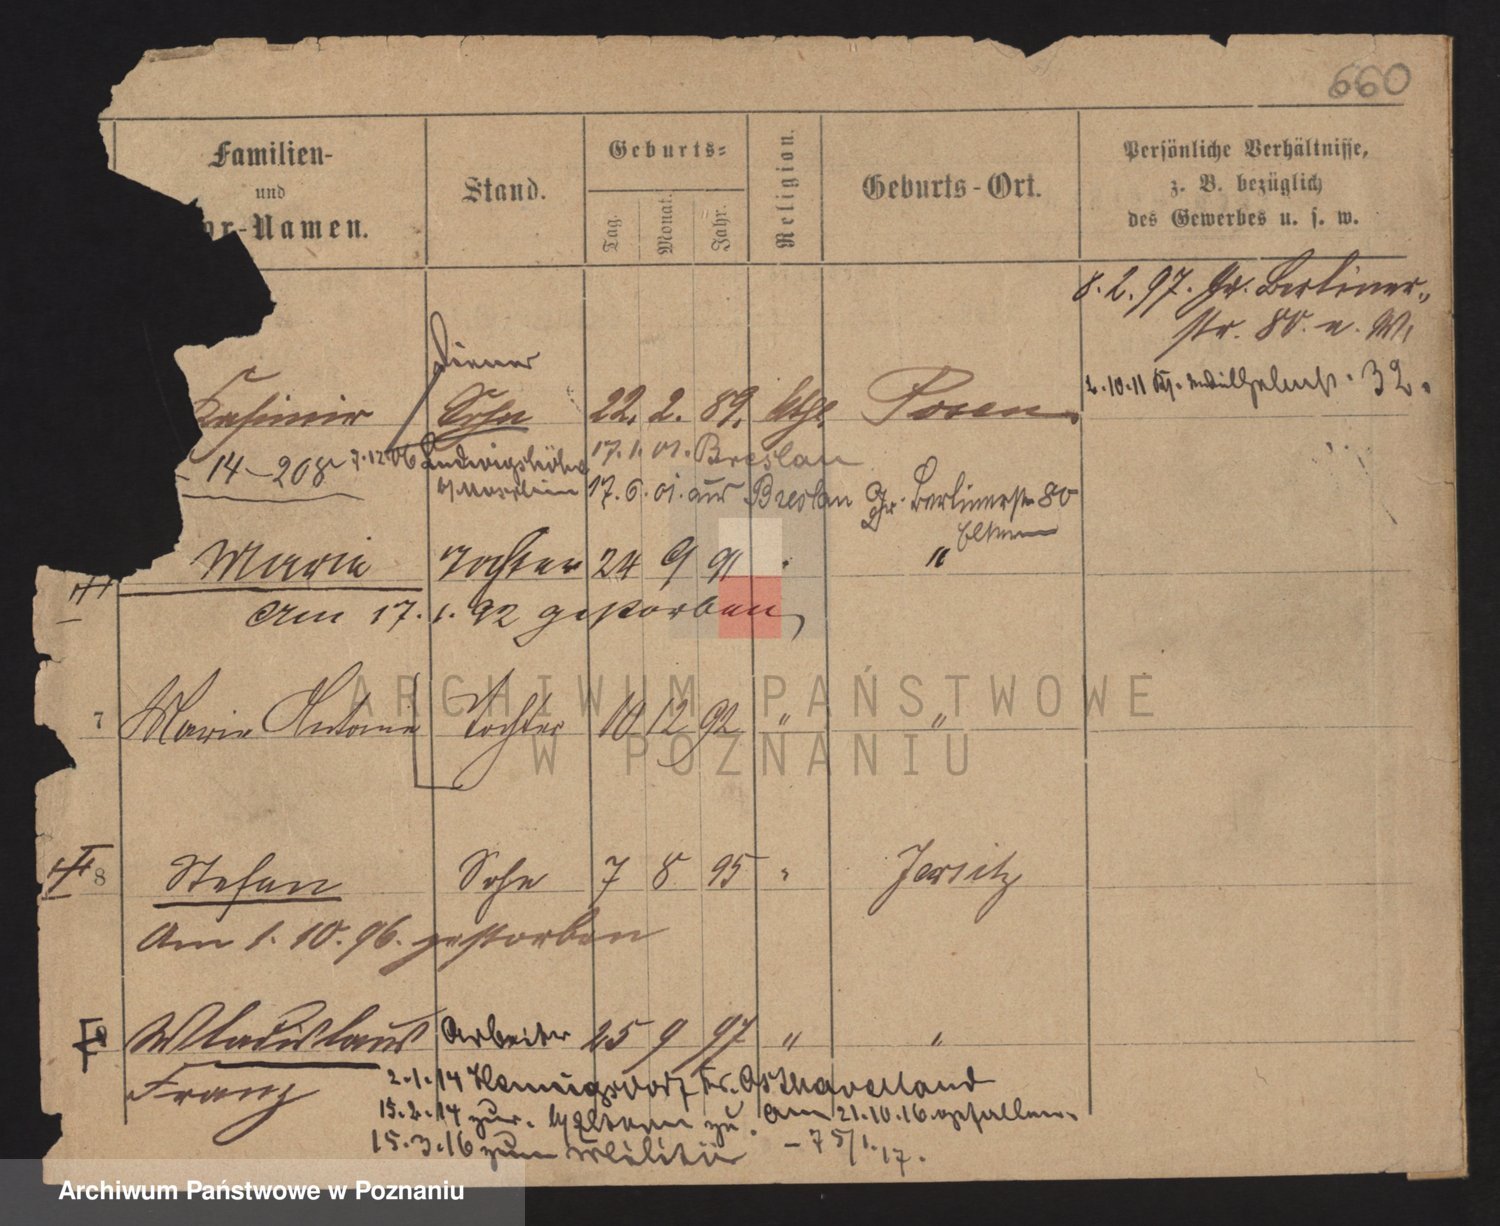 660
Familien-
und
or-Namen.
Stand.
Geburts-
Tag.
Monat.
Jahr.
Religion.
Geburts-Ort.
Persönliche Verhältnisse,
z. B. bezüglich
des Gewerbes u. s. w.
8. 2. 97. Gr. Berliner-
str. 80. n. W.
Diener
2.10.11 Wilhelmst. 32.
Kasimir Sohn 22. 2. 89. kth. Posen
14-208 7.12.06 Ludwigshöhe 17. 1. 01. Breslau
17. 6. 01. aus Breslau Gr. Berlinerstr 80
Eltern
Marie Tochter 24 9 91 " "
Am 17. 1. 92 gestorben
7 Marie Antonie Tochter 10 12 92 " "
ARCHIWUM PAŃSTWOWE
W POZNANIU
8 Stefan Sohn 7 8 95 " Jersitz
Am 1. 10. 96. gestorben
Wladislaus Arbeiter 25 9 97 " "
Franz 2.1.14 Hennigsdorf Kr. Osthavelland
15.2.14 zur. Eltern zu. Am 21.10.16 gefallen.
15.3.16 zum Militär – 75/1.17.
Archiwum Państwowe w Poznaniu